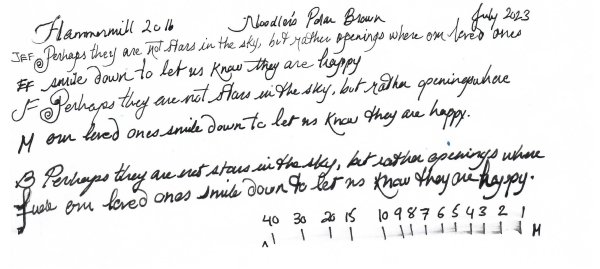 Hammermill 20 lb Noodler's Polar Brown July 2023
JEF @Perhaps they are not stars in the sky, but rather openings where our loved ones
EF smile down to let us know they are happy
F @Perhaps they are not stars in the sky, but rather openings where
M our loved ones smile down to let us know they are happy.
B Perhaps they are not stars in the sky, but rather openings where
Fude our loved ones smile down to let us know they are happy.
40 30 20 15 10 9 8 7 6 5 4 3 2 1 M